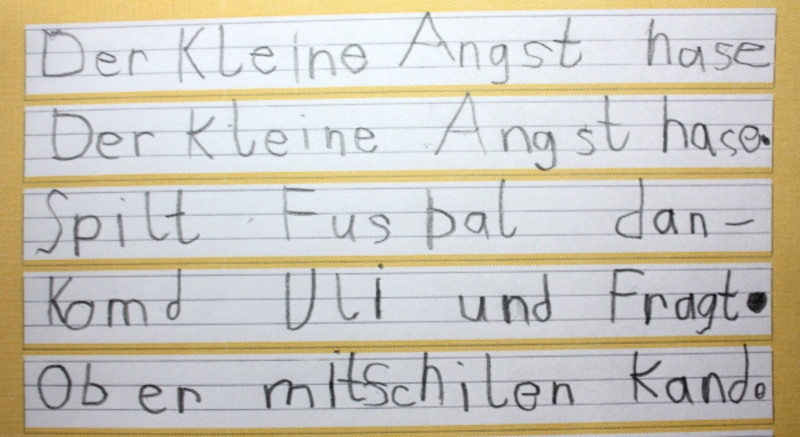 Der Kleine Angst hase
Der kleine Angst hase.
Spilt Fus bal dan-
Komd Uli und Fragt.
Ob er mitschilen Kand.